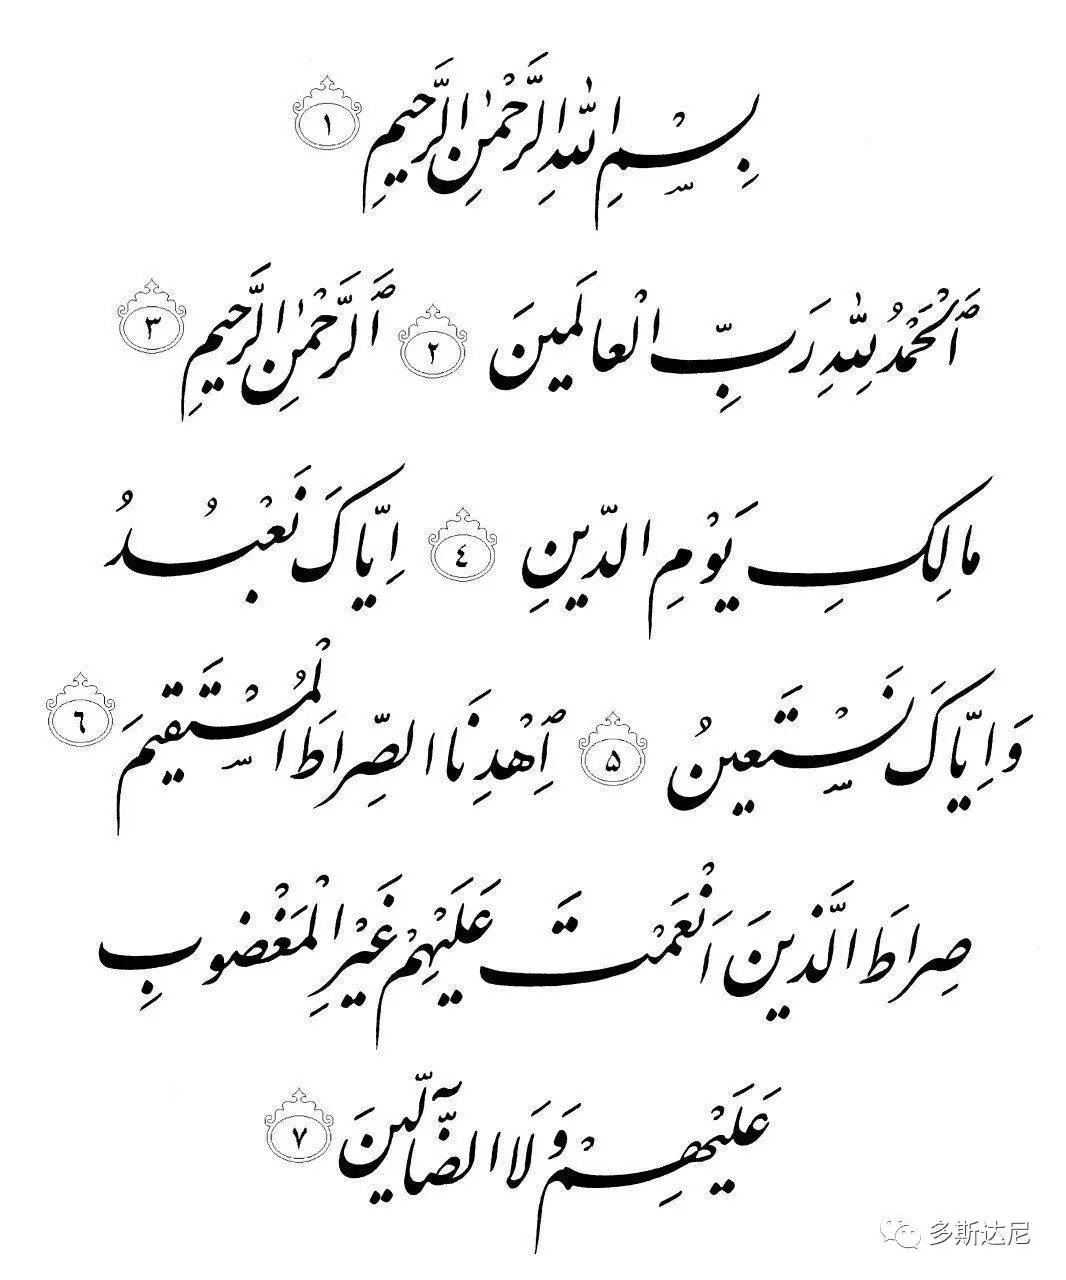 بِسْمِ اللّٰهِ الرَّحْمٰنِ الرَّحیمِ ١
اَلْحَمْدُ لِلّٰهِ رَبِّ الْعالَمینَ ٢ اَلرَّحْمٰنِ الرَّحیمِ ٣
مالِکِ یَوْمِ الدّینِ ٤ اِیّاکَ نَعْبُدُ
وَ اِیّاکَ نَسْتَعینُ ۵ اِهْدِنَا الصِّراطَ الْمُسْتَقیمَ ٦
صِراطَ الَّذینَ اَنْعَمْتَ عَلَیْهِمْ غَیْرِ الْمَغْضوبِ
عَلَیْهِمْ وَلَا الضّآلّینَ ٧
多斯达尼